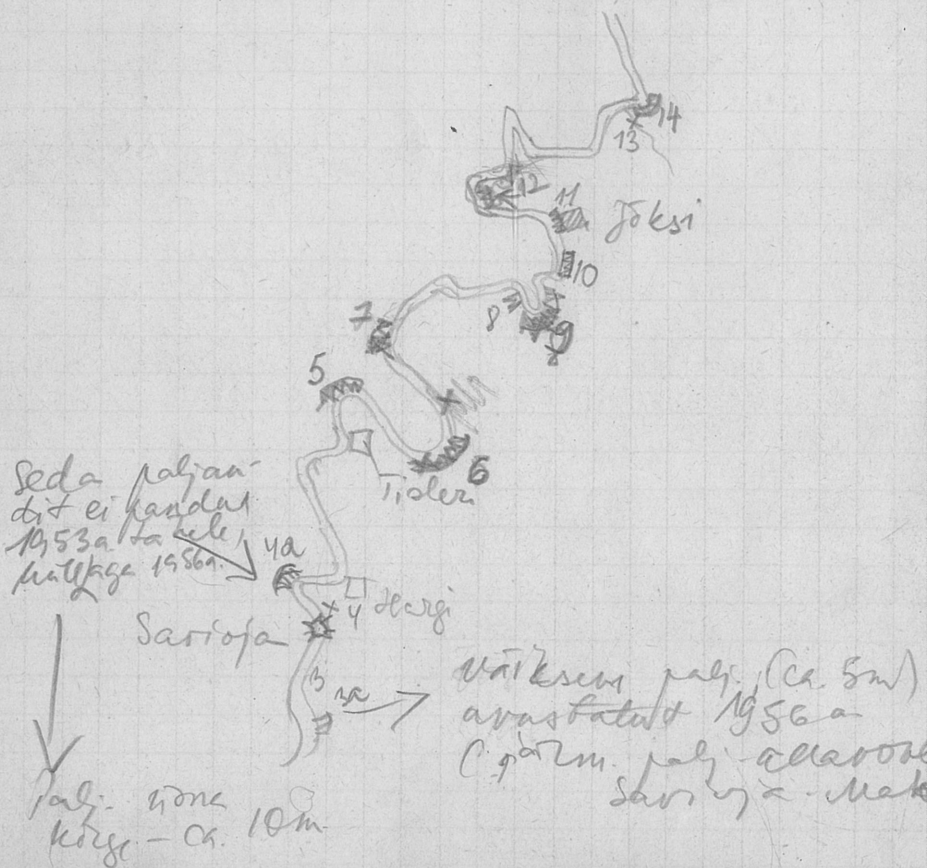 14
13
12
11 Jõksi
10
9
8
7
5
6
Seda paljan-
dit ei pandud
1953a tähele,
1956a.
4a
4 Hargi
Sarioja
3
3a
väiksem palj. (ca. 5m)
avastatud 1956a
palj. allavoolu
Sarioja
Palj. üsna
kõrge – ca. 10m